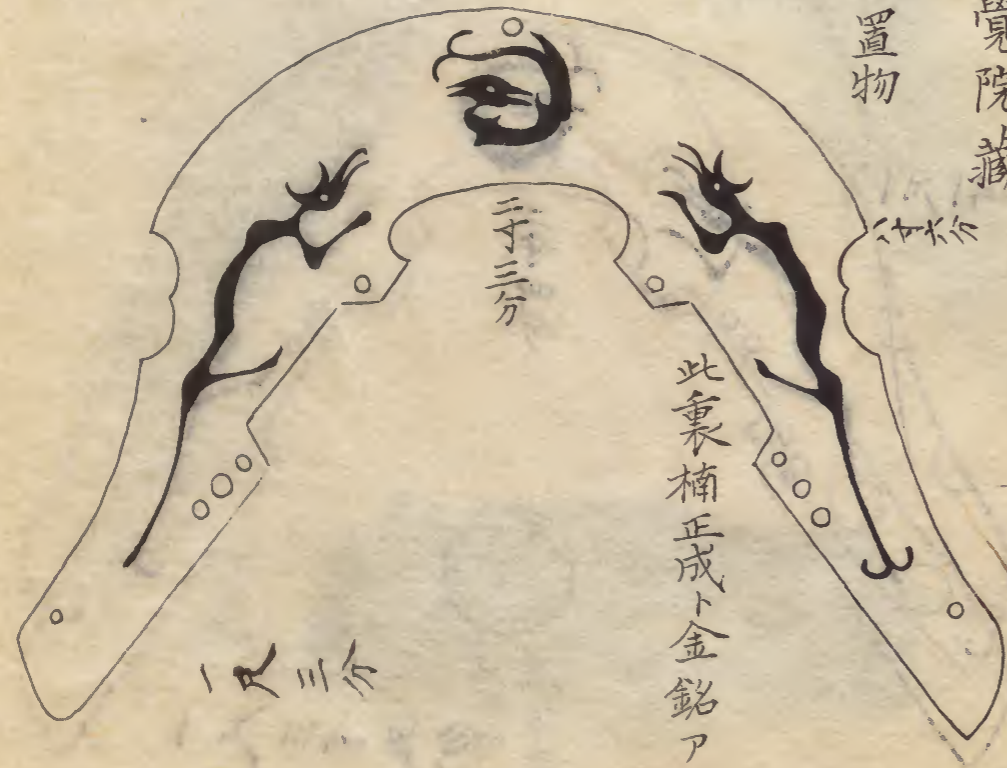 覺院藏
置物
八寸六分
二寸三分
此裏楠正成ト金銘ア
一尺三分